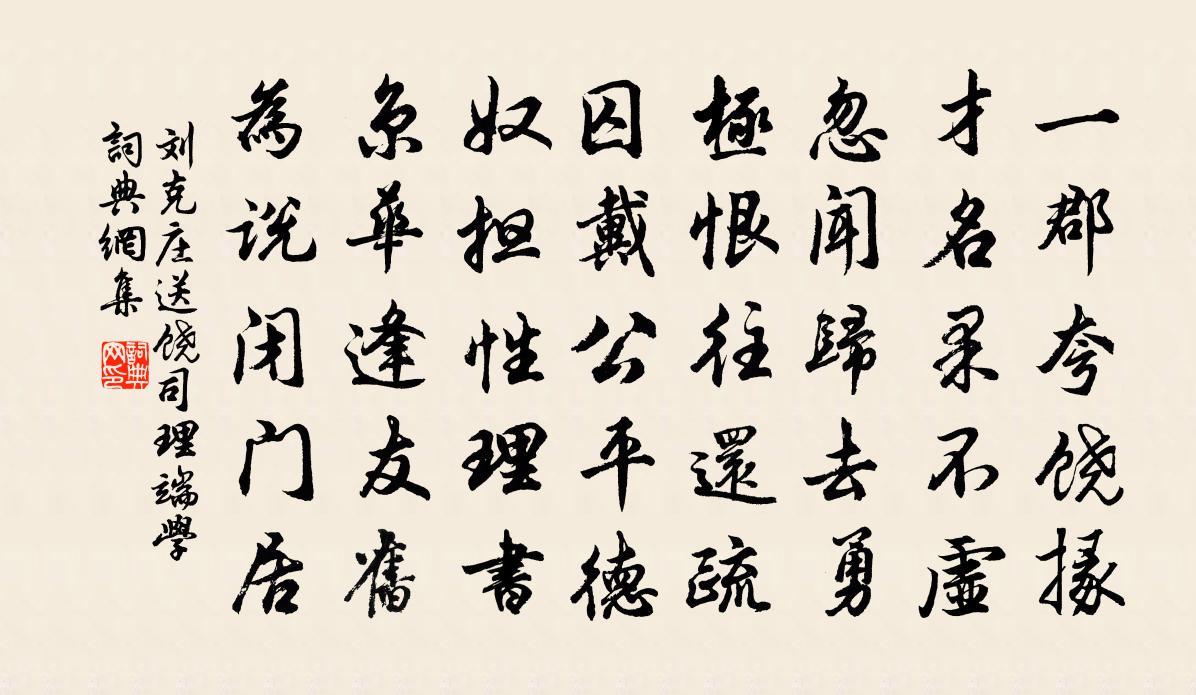 一郡夸饶掾
才名果不虚
忽闻歸去勇
極恨往還疏
囚戴公平德
奴担性理書
京華逢友舊
為说闭门居
刘克庄送饶司理端學
詞典網集
詞典網印